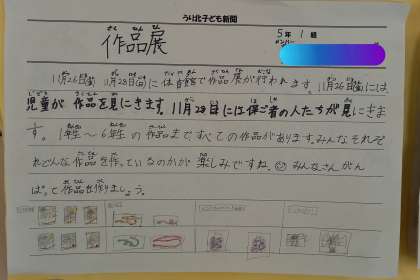 うりぼ子ども新聞
作品展
5年 1組
メンバー
11月26日(金) 11月28日(日)に体育館で作品展が行われます。11月26日(金)には、
児童が作品を見にきます。11月28日には保ご者の人たちが見にきま
す。1年生〜6年生の作品まですべての作品があります。みんなそれぞ
れどんな作品を作っているのかが楽しみですね。みんなさんがん
ばって作品を作りましょう。